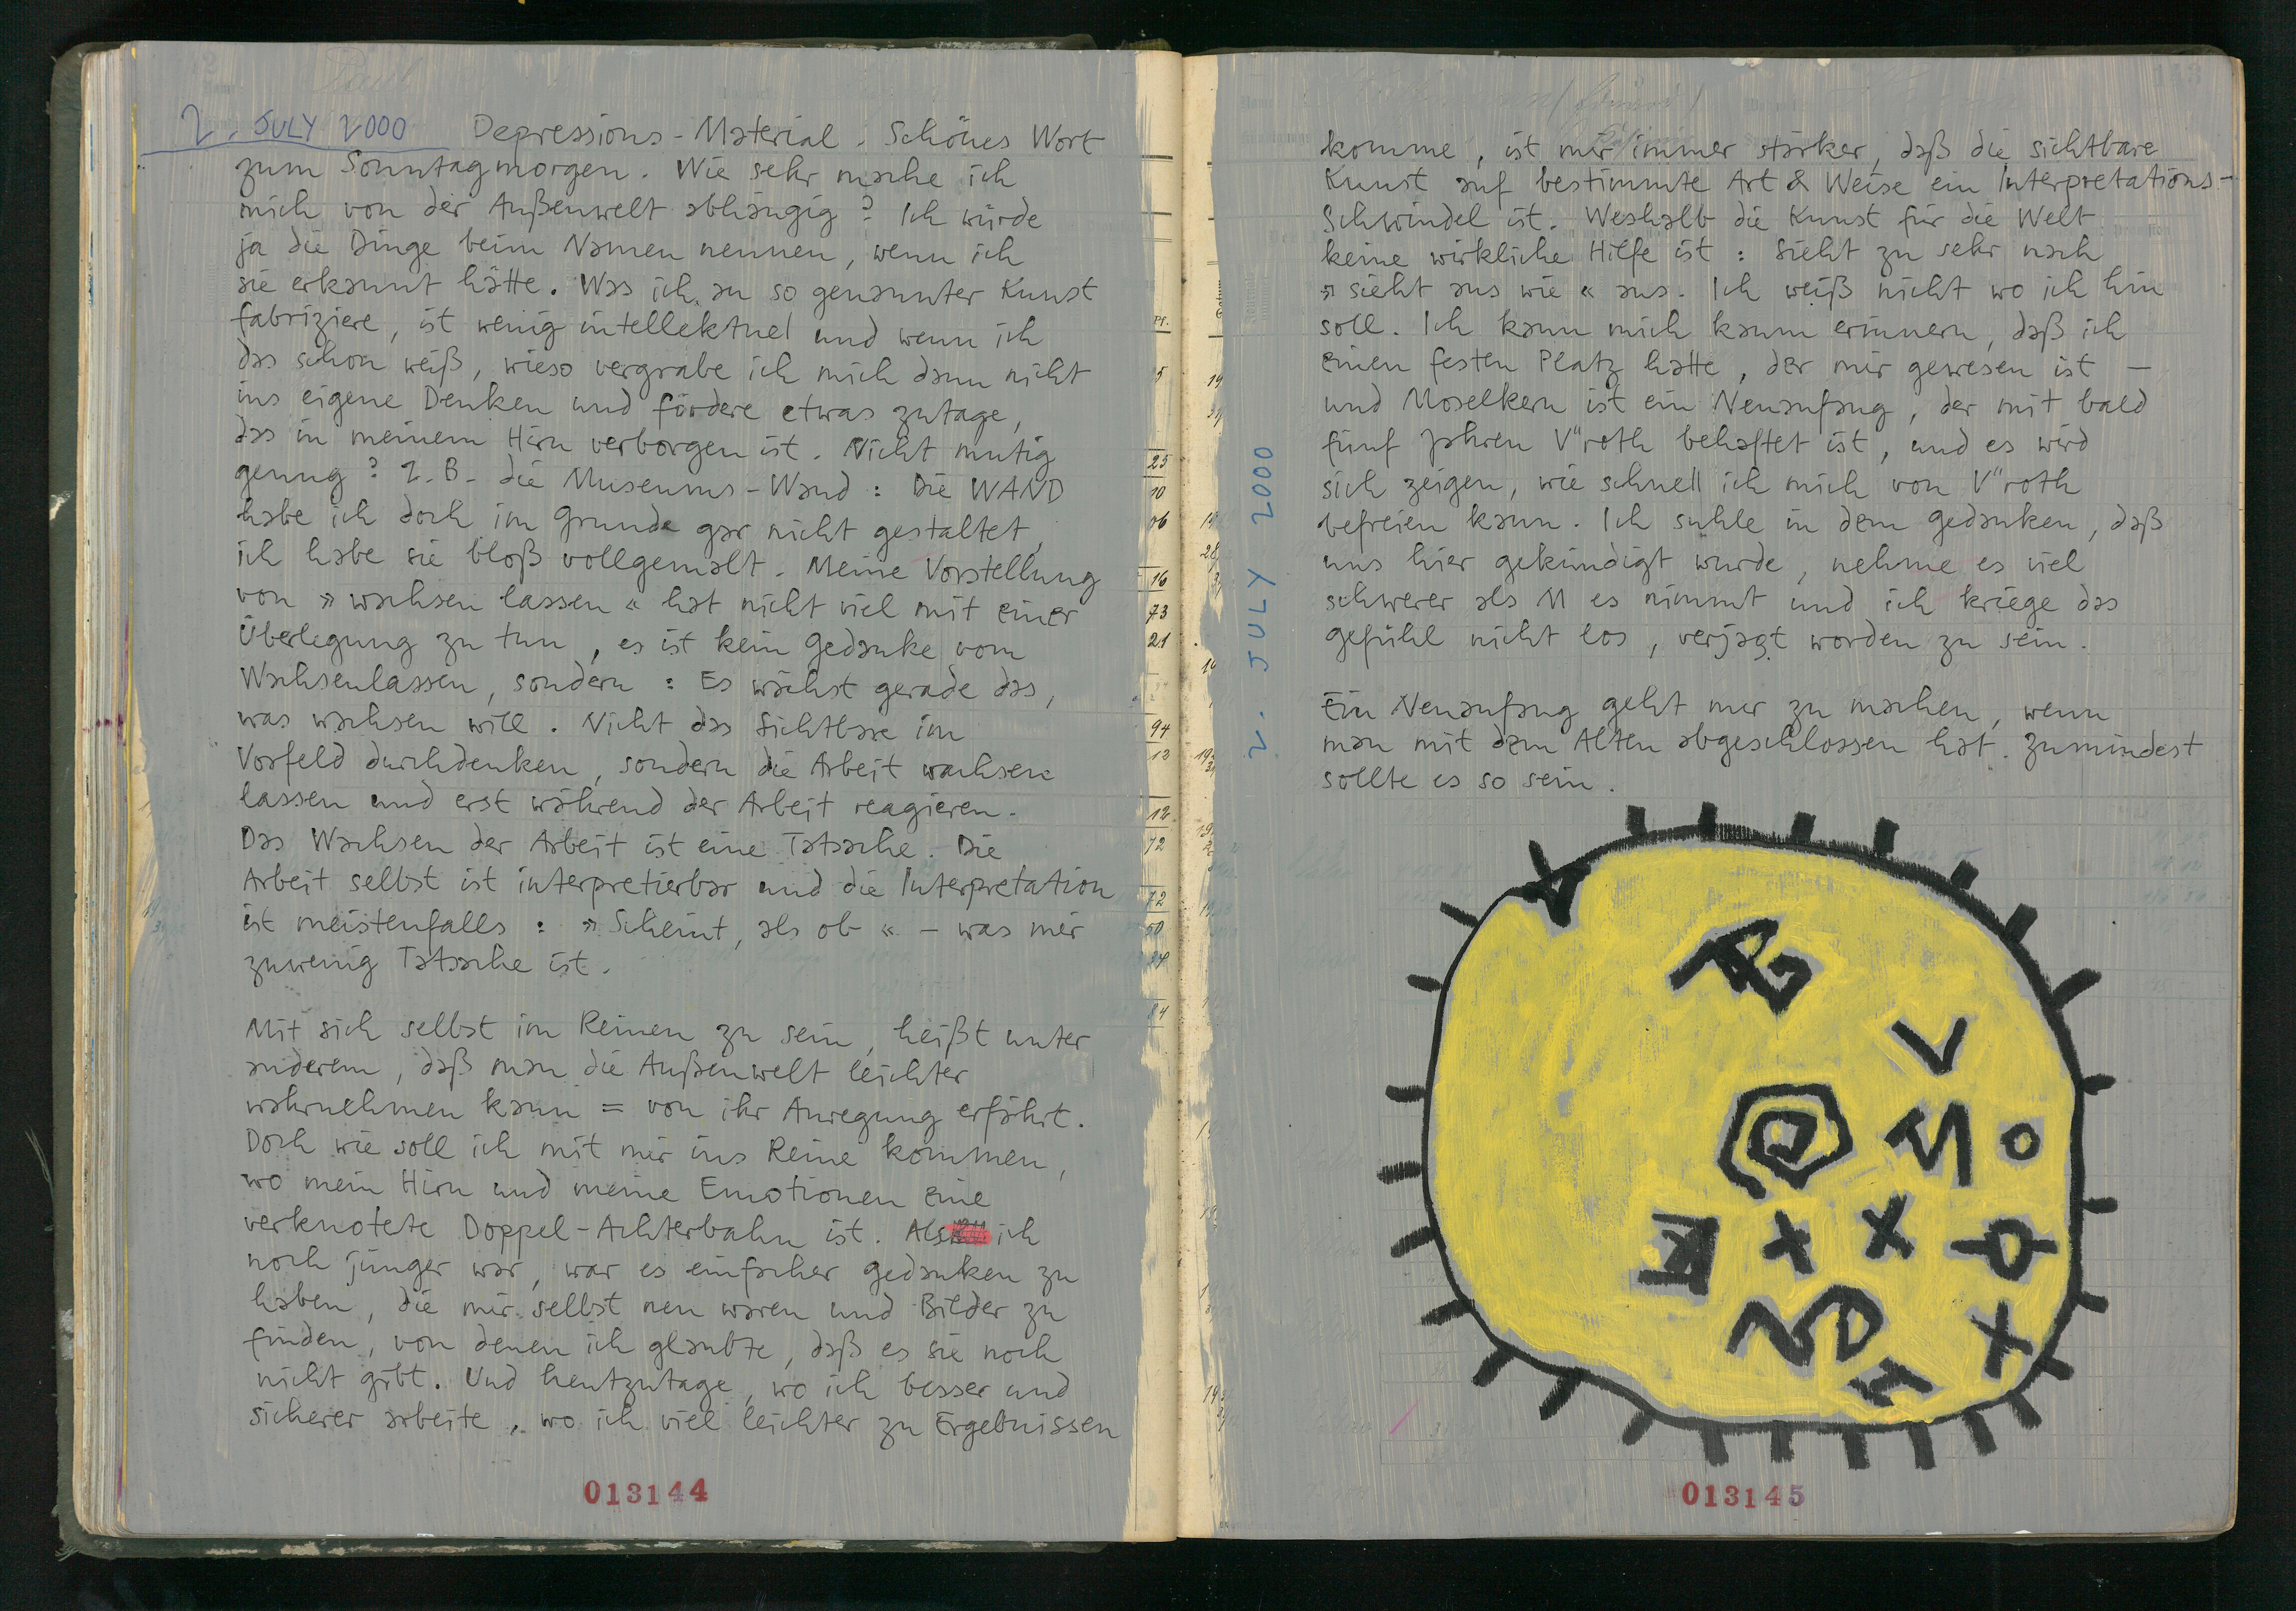 2. JULY 2000 Depressions-Material. Schönes Wort
zum Sonntagmorgen. Wie sehr mache ich
mich von der Außenwelt abhängig? Ich würde
ja die Dinge beim Namen nennen, wenn ich
sie erkannt hätte. Was ich an so genannter Kunst
fabriziere, ist wenig intellektuel und wenn ich
das schon weiß, wieso vergrabe ich mich dann nicht
ins eigene Denken und fördere etwas zutage,
das in meinem Hirn verborgen ist. Nicht mutig
genug? Z.B. die Museums-Wand: Die WAND
habe ich doch im Grunde gar nicht gestaltet,
ich habe sie bloß vollgemalt. Meine Vorstellung
von »wachsen lassen« hat nicht viel mit einer
Überlegung zu tun, es ist kein Gedanke vom
Wachsenlassen, sondern: Es wächst gerade das,
was wachsen will. Nicht das Sichtbare im
Vorfeld durchdenken, sondern die Arbeit wachsen
lassen und erst während der Arbeit reagieren.
Das Wachsen der Arbeit ist eine Tatsache. Die
Arbeit selbst ist interpretierbar und die Interpretation
ist meistenfalls: »Scheint, als ob« – was mir
zuwenig Tatsache ist.
Mit sich selbst im Reinen zu sein, heißt unter
anderem, daß man die Außenwelt leichter
wahrnehmen kann = von ihr Anregung erfährt.
Doch wie soll ich mit mir ins Reine kommen,
wo mein Hirn und meine Emotionen eine
verknotete Doppel-Achterbahn ist. Als ich
noch jünger war, war es einfacher Gedanken zu
haben, die mir selbst neu waren und Bilder zu
finden, von denen ich glaubte, daß es sie noch
nicht gibt. Und heutzutage, wo ich besser und
sicherer arbeite, wo ich viel leichter zu Ergebnissen
013144
2. JULY 2000
komme, ist mir immer stärker, daß die sichtbare
Kunst auf bestimmte Art & Weise ein Interpretations-
Schwindel ist. Weshalb die Kunst für die Welt
keine wirkliche Hilfe ist: Sieht zu sehr nach
»sieht aus wie« aus. Ich weiß nicht wo ich hin
soll. Ich kann mich kaum erinnern, daß ich
einen festen Platz hatte, der mir gewesen ist –
und Moselkern ist ein Neuanfang, der mit bald
fünf Jahren V"roth behaftet ist, und es wird
sich zeigen, wie schnell ich mich von V"roth
befreien kann. Ich suhle in dem Gedanken, daß
uns hier gekündigt wurde, nehme es viel
schwerer als M es nimmt und ich kriege das
Gefühl nicht los, verjagt worden zu sein.
Ein Neuanfang geht nur zu machen, wenn
man mit dem Alten abgeschlossen hat. Zumindest
sollte es so sein.
013145